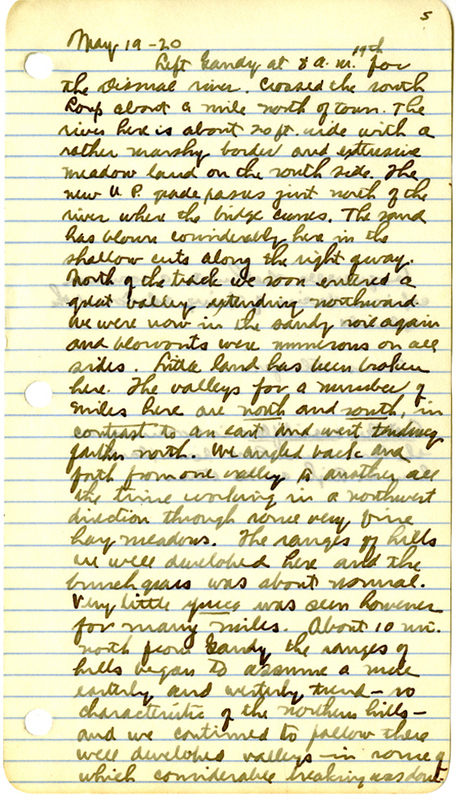 5
May 19-20
19th
Left Gandy at 8 a.m. for
the Dismal river. Crossed the South
Loup about a mile north of town. The
river here is about 20 ft. wide with a
rather marshy border and extensive
meadow land on the south side. The
new U. P. grade passes just north of the
river where the bridge comes. The sand
has blown considerably here in the
shallow cuts along the right of way.
North of the track we soon entered a
great valley extending northward
We were now in the sandy soil again
and blowouts were numerous on all
sides. Little land has been broken
here. The valleys for a number of
miles here are north and south, in
contrast to an east and west tendency
farther north. We angled back and
forth from one valley to another all
the time working in a northwest
direction through some very fine
hay meadows. The ranges of hills
are well developed here and the
bunch grass was about normal.
Very little yucca was seen however
for many miles. About 10 mi.
north from Gandy the ranges of
hills began to assume a more
easterly and westerly trend - so
characteristic of the northern hills -
and we continued to follow these
well developed valleys - in some of
which considerable breaking was done